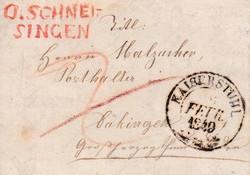 O. SCHNEI-
SINGEN
Titl:
Herrn Malzacher,
Posthalter
Säkingen
Großherzogthum Baden
KAISERSTUHL
FEBR.
1840